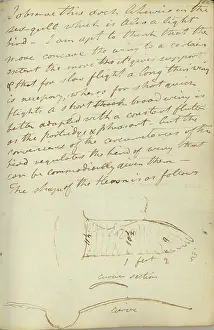 To observe this doct. Whereas in the
sea gull which is also a light
bird I am apt to think that the
more concave the wing to a certain
extent the more it gives support
& that for slow flight a long thin wing
is necessary, whereas for short quick
flights a short broad wing is
better adapted with a constant flutter
as the partridge & pheasant. but the
convenience of the circumstances of the
bird regulates the kind of wing that
can be commodiously given them —
The shape of the Heron is as follows
1 foot
curve section
curve